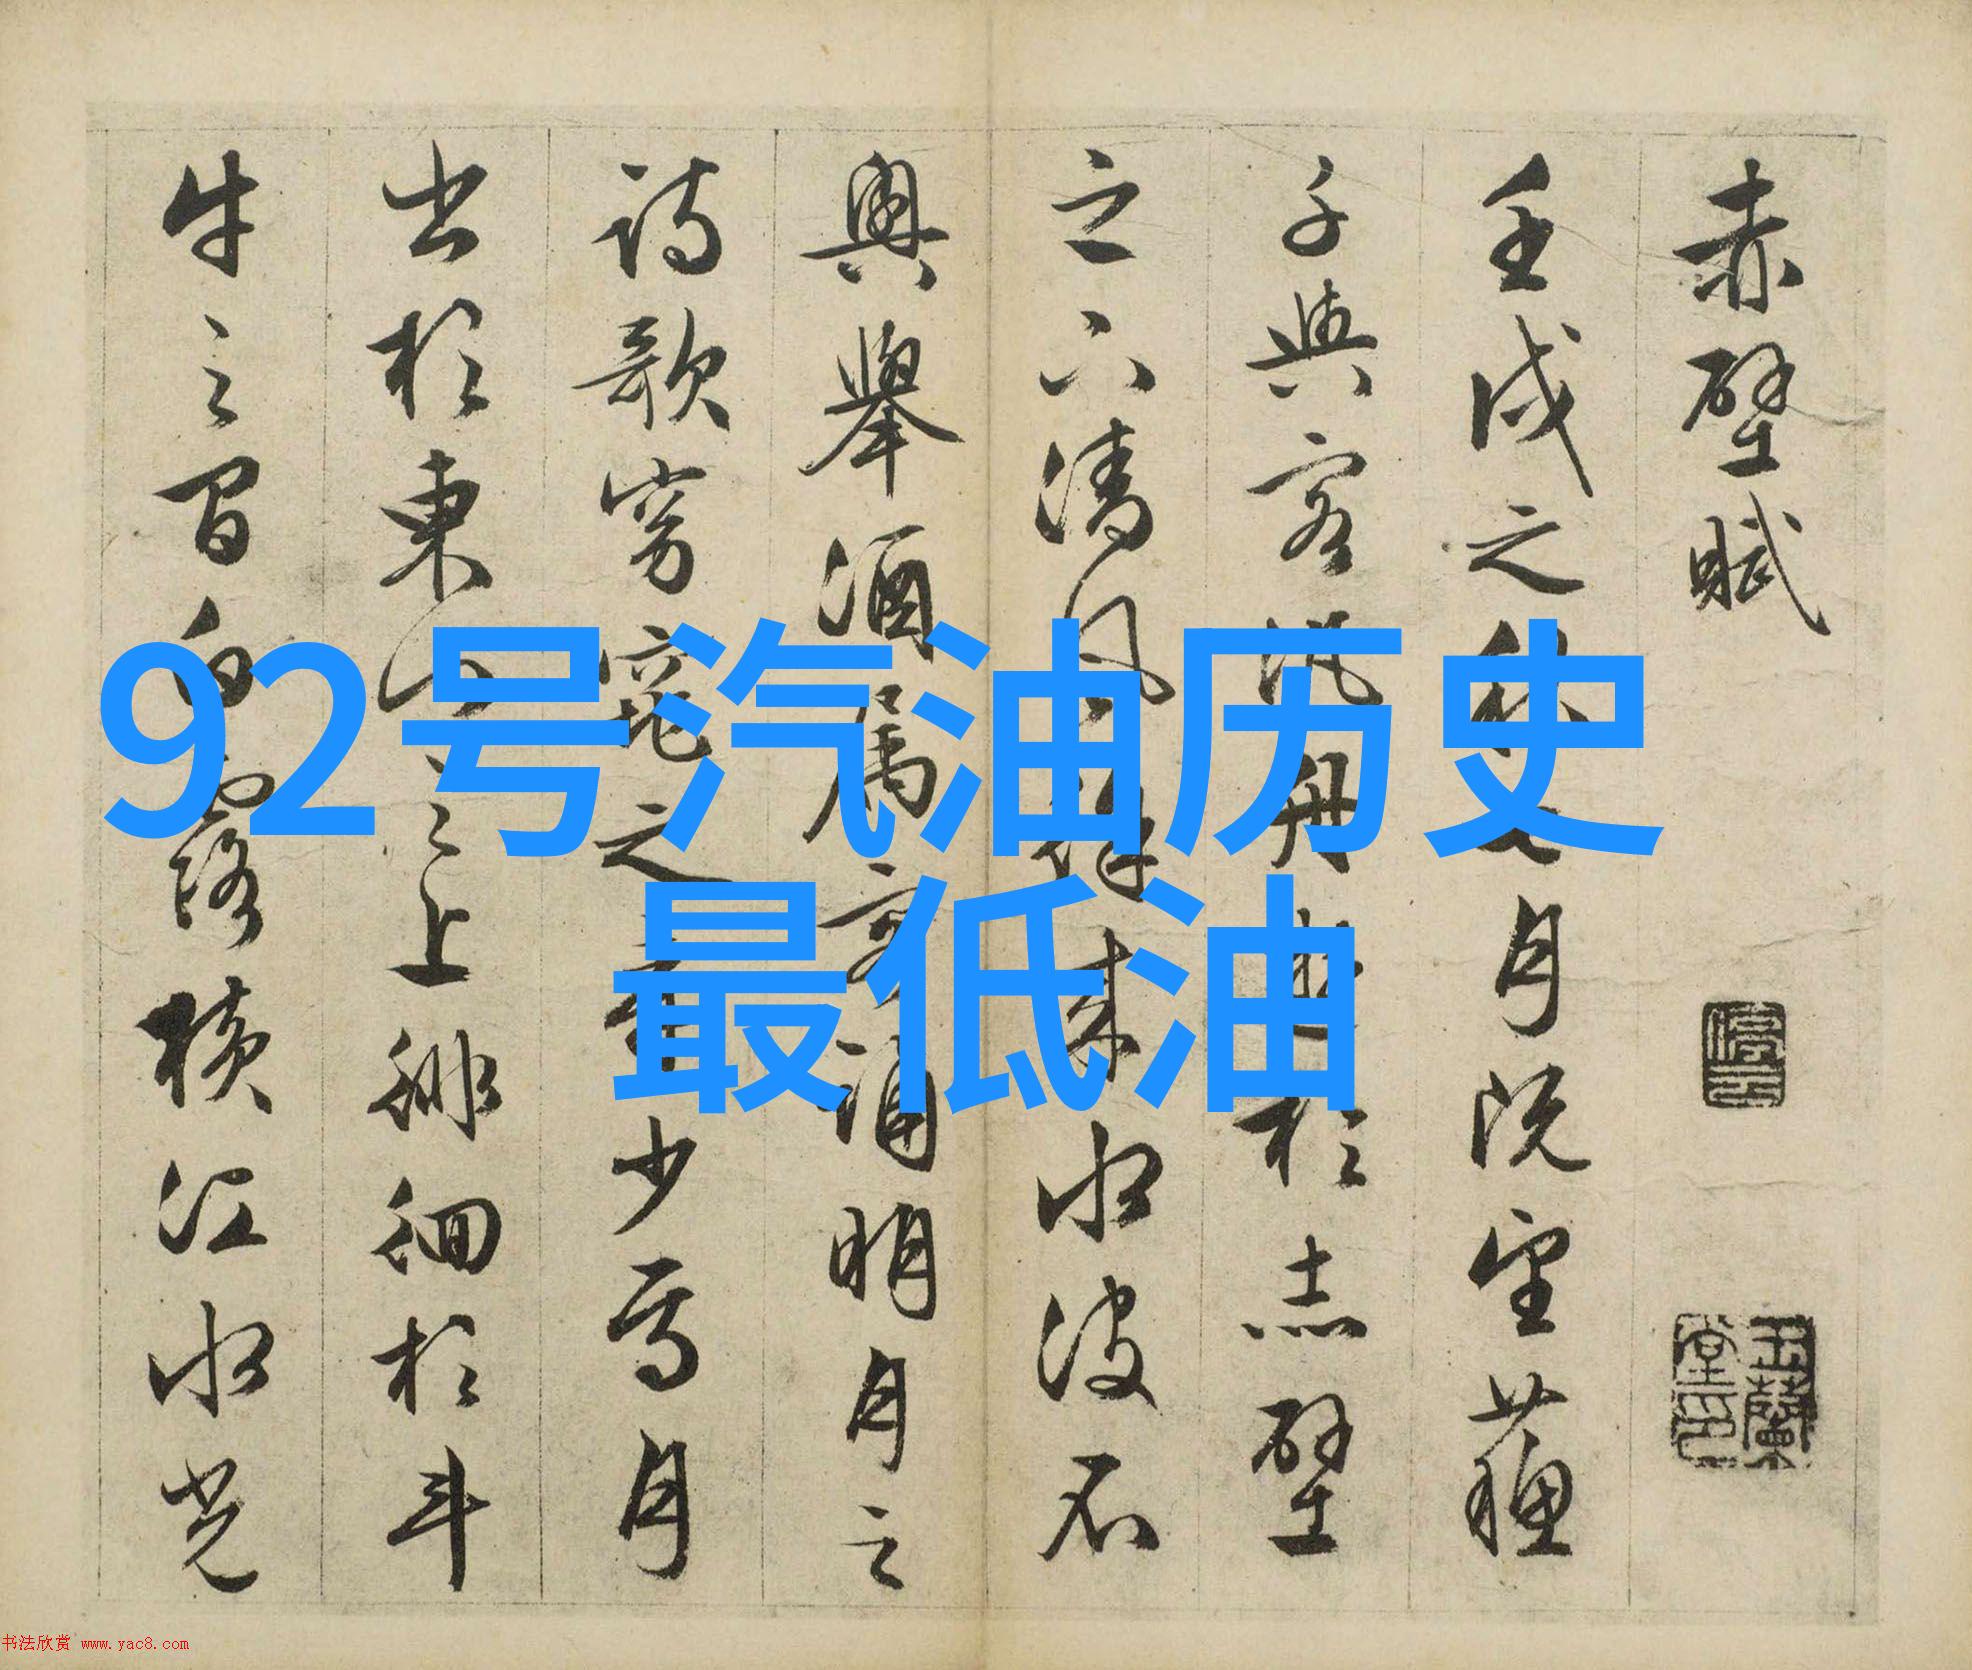 赤壁賦
壬戌之秋七月既望蘓
子與客泛舟遊於赤壁
之下清風徐来水波不
興舉酒属客誦明月之
詩歌窈窕之章少焉月
出於東山之上徘徊於斗
牛之間白露横江水光
92号汽油历史
最低油
停云
玉蘭
堂印
书法欣赏 www.yac8.com